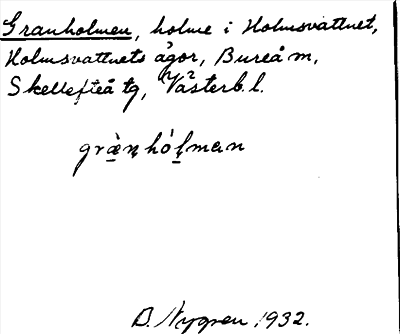 Granholmen, holme i Holmsvattnet,
Holmsvattnets ägor, Bureå sn,
Skellefteå tg, Västerb. l.
græ̀n̥hól̥man
B. Nygren 1932.